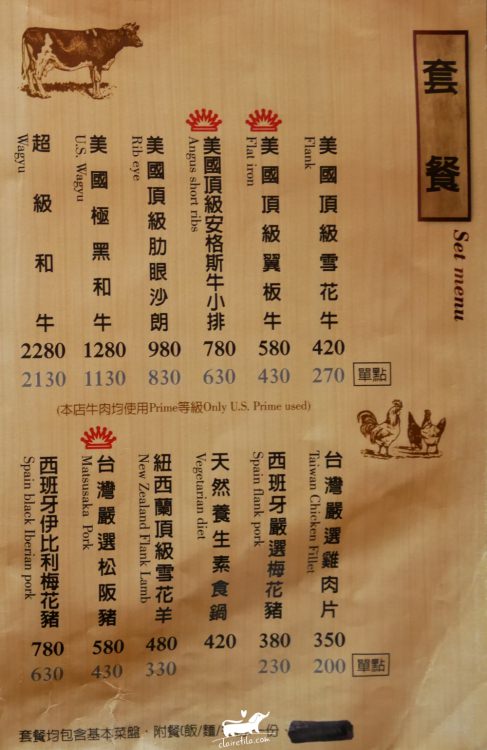 套餐
Set menu
美國頂級雪花牛
Flank
420
270
單點
美國頂級翼板牛
Flat iron
580
430
美國頂級安格斯牛小排
Angus short ribs
780
630
美國頂級肋眼沙朗
Rib eye
980
830
美國極黑和牛
U.S. Wagyu
1280
1130
超級和牛
Wagyu
2280
2130
(本店牛肉均使用Prime等級Only U.S. Prime used)
台灣嚴選雞肉片
Taiwan Chicken Fillet
350
200
單點
西班牙嚴選梅花豬
Spain flank pork
380
230
天然養生素食鍋
Vegetarian diet
420
紐西蘭頂級雪花羊
New Zealand Flank Lamb
480
330
台灣嚴選松阪豬
Matsusaka Pork
580
430
西班牙伊比利梅花豬
Spain black Iberian pork
780
630
套餐均包含基本菜盤，附餐(飯/麵/
份，
clairetila.com